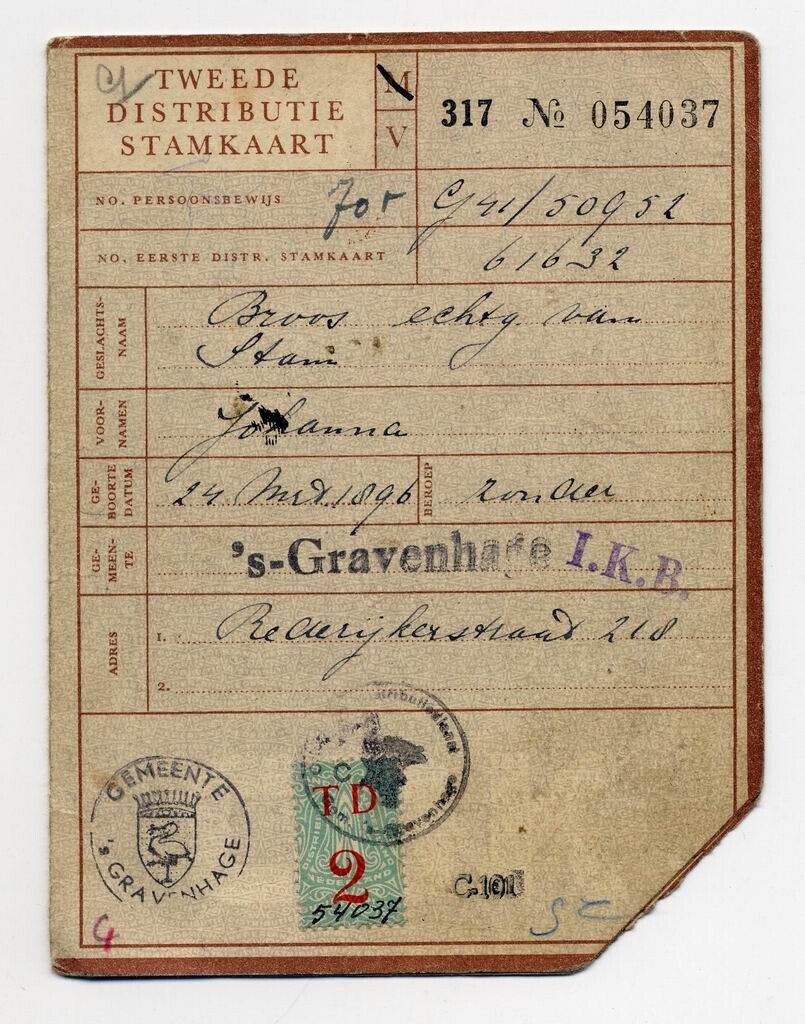 TWEEDE
DISTRIBUTIE
STAMKAART
M
V
317 № 054037
NO. PERSOONSBEWIJS
G41/50952
NO. EERSTE DISTR. STAMKAART
61632
GESLACHTS-
NAAM
Broos echtg van
Stam
VOOR-
NAMEN
Johanna
GE-
BOORTE
DATUM
24 Mrt. 1896
BEROEP
zonder
GE-
MEEN-
TE
's-Gravenhage I.K.B.
ADRES
1. Rederijkerstraat 218
2.
GEMEENTE
's GRAVENHAGE
TD
2
54037
C.101